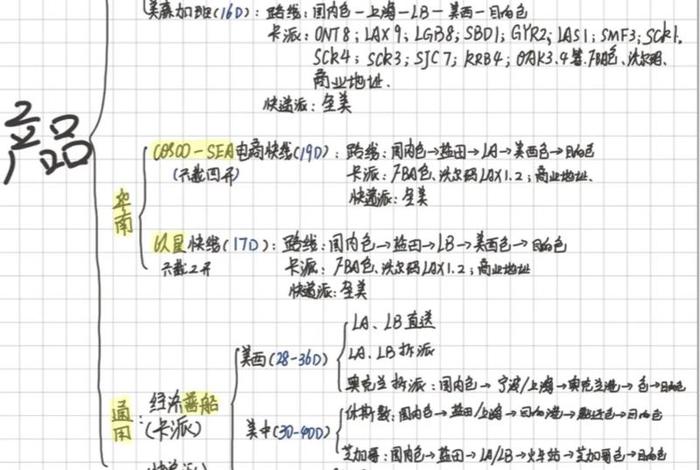 美森加班(16D)：路线：国内仓-上海-LB-美西-目的仓
卡派：ONT8；LAX9；LGB8；SBD1；GYR2；LAS1；SMF3；SCK1.
SCK4；SCK3；SJC7；KRB4；OAK3.4等.FBA仓、沃尔玛、
商业地址.
快递派：全美
产品
华南
COSCO-SEA电商快线(19D)：路线：国内仓→盐田→LA→美西仓→目的仓
(六截四开)
卡派：FBA仓、沃尔玛LAX1.2；商业地址.
快递派：全美
以星快线(17D)：路线：国内仓→盐田→LB→美西仓→目的仓
六截2开
卡派：FBA仓、沃尔玛LAX1.2；商业地址
快递派：全美
通用：
经济普船
(卡派)
美西(28-36D)
LA、LB直送
LA、LB拆派
奥克兰拆派：国内仓→宁波/上海→奥克兰港→仓→目的仓
美中(30-40D)
休斯敦：国内仓→盐田/上海→→→目的仓
芝加哥：国内仓→盐田→LA/LB→火车站→芝加哥仓→目的仓